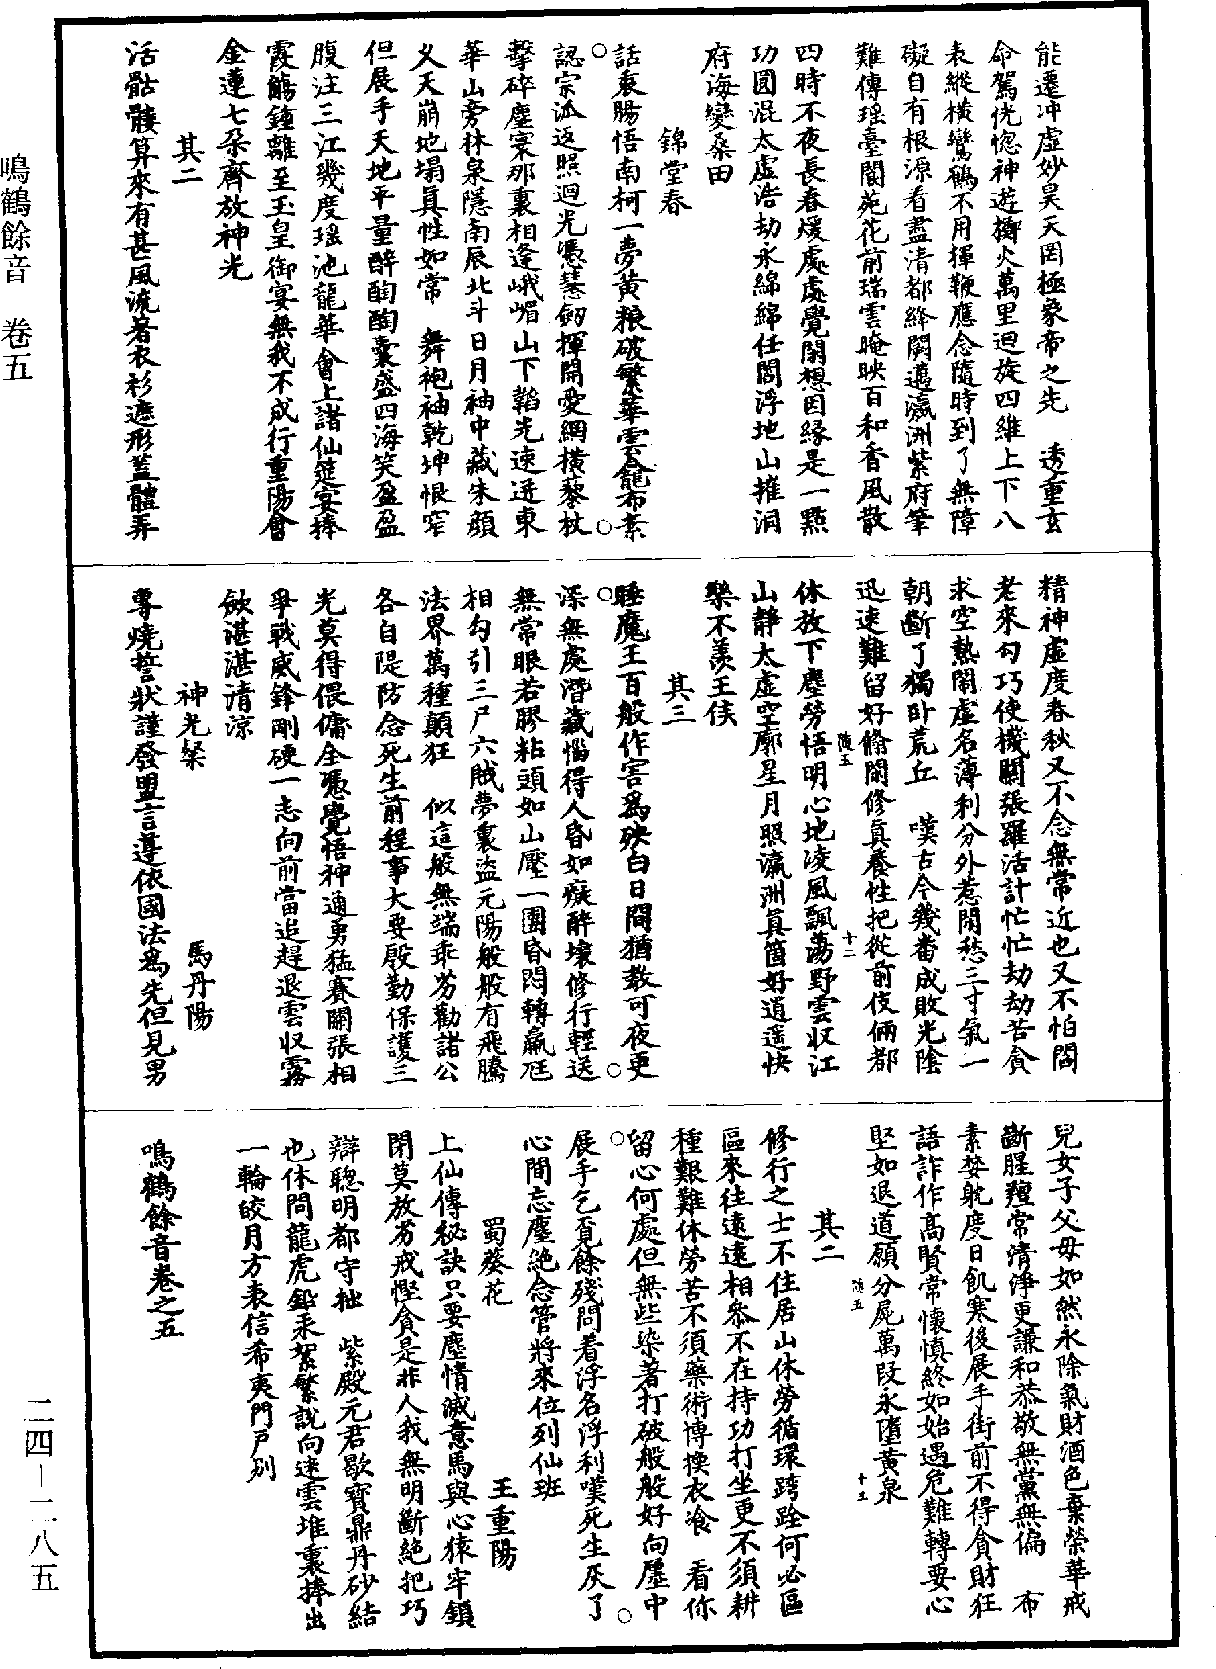 鳴鶴餘音　卷五
能遷冲虛妙昊天罔極象帝之先　透重玄
命駕恍惚神遊擲火萬里迴旋四維上下八
表縱橫鸞鶴不用揮鞭應念隨時到了無障
礙自有根源看盡清都絳闕邁瀛洲紫府筆
難傳瑶臺閬苑花前瑞雲晻映百和香風散
四時不夜長春煖處處覺閑想因緣是一點
功圓混太虛浩劫永綿綿任閻浮地山摧洞
府海變桑田
錦堂春
話衷腸悟南柯一夢黃粮破繁華雲龕布素
認宗派返照迴光憑慧劒揮開愛網橫藜杖
擊碎塵寰那裏相逢峨嵋山下韜光速迸東
華山旁林泉隱南辰北斗日月袖中藏朱顔
義天崩地塌真性如常　舞袍袖乾坤恨窄
但展手天地平量醉酶酶囊盛四海笑盈盈
腹注三江幾度瑶池龍華會上諸仙筵宴捧
霞觴鍾離至玉皇御宴無我不成行重陽會
金蓮七朵齊放神光
其二
活骷髏算來有甚風流著衣衫遮形蓋體弄
精神虛度春秋又不念無常近也又不怕閻
老來勾巧使機關張羅活計忙忙劫劫苦貪
求空熱鬧虛名薄利分外惹閑愁三寸氣一
朝斷了獨卧荒丘　嘆古今幾番成敗光陰
迅速難留好脩閑修真養性把從前伎倆都
休放下塵勞悟明心地凌風飄蕩野雲收江
山靜太虛空廓星月照瀛洲真箇好逍遥快
樂不羨王侯
其三
睡魔王百般作害爲殃白日間猶教可夜更
深無處潛藏惱得人昏如癡醉壞修行輕送
無常眼若膠粘頭如山壓一團昏悶轉羸尫
相勾引三尸六賊夢裏盜元陽般般有飛騰
法界萬種顛狂　似這般無端乖劣勸諸公
各自隄防念死生前程事大要殷勤保護三
光莫得偎傭全憑覺悟神通勇猛賽關張相
爭戰威鋒剛硬一志向前當追趕退雲收霧
斂湛湛清涼
神光燦　馬丹陽
專燒誓狀謹發盟言遵依國法爲先但見男
兒女子父母如然永除氣財酒色棄榮華戒
斷腥羶常清淨更謙和恭敬無黨無偏　布
素婪躭度日飢寒後展手街前不得貪財狂
語詐作高賢常懷慎終如始遇危難轉要心
堅如退道願分屍萬段永墮黃泉
其二
修行之士不住居山休勞循環跨踐何必區
區來往遠遠相叅不在持功打坐更不須耕
種艱難休勞苦不須藥術博換衣飡　看你
留心何處但無些染著打破般般好向㕓中
展手乞覓餘殘問着浮名浮利嘆死生灰了
心間忘塵絶念管將來位列仙班
蜀葵花　王重陽
上仙傳秘訣只要塵情滅意馬與心猿牢鎖
閉莫放劣戒慳貪是非人我無明斷絶把巧
辯聰明都守拙　紫殿元君歇寶鼎丹砂結
也休問龍虎鉛汞絮繁說向速雲堆裏捧出
一輪皎月方表信希夷門戶別
鳴鶴餘音卷之五
隨五　十二
隨五　十五
二四—二八五